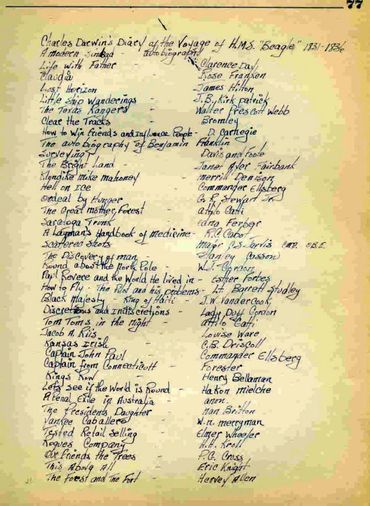 77
Charles Darwin's Diary of the Voyage of H.M.S. "Beagle" 1831-1836
A modern Sinbad - autobiography
Life With Father - Clarence Day
Claudia - Rose Franken
Lost Horizon - James Hilton
Little Ship Wanderings - J.B. Kirkpatrick
The Texas Rangers - Walter Prescott Webb
Clear the Tracks - Bromley
How to Win friends and Influence People - D. Carnegie
The autobiography of Benjamin Franklin
Surveying - Davis and Foote
The Bright Land - Janet Ayer Fairbank
Klondike Mike Mahoney - Merrill Denison
Hell on Ice - Commander Ellsberg
Ordeal by Hunger - Geo R. Stewart Jr.
The Great Mother Forest - Attilo Gatti
Saratoga Trunk - Edna Ferber
A Layman's Handbook of medicine - R.C. Cabot
Scattered Shots - Major C.S. Jarvis C.M.G. O.B.E.
The Discovery of man - Stanley Casson
Round about the North Pole - W.J. Gordon
Paul Revere and the World He lived in - Esther Forbes
How to Fly - The Pilot and his problems - Lt. Barrett Studley
Black Majesty - King of Haiti - J.W. Vandercook
Discretions and Indiscretions - Lady Duff Gordon
Tom Toms in the night - Attilo Gatti
Jacob A. Riis - Louise Ware
Kansas Irish - C.B. Driscoll
Captain John Paul - Commander Ellsberg
Captain from Connecticutt - Forester
Kings Row - Henry Bellaman
Lets see if the World is Round - Hakon mielche
A Penal Exile in Australia - anon.
The Presidents Daughter - Nan Britton
Yankee Caballero - W.n. merryman
Tested Retail Selling - Elmer Wheeler
Rogues Company - H.H. Kroll
Our Friends the Trees - P.G. Cross
This Above All - Eric Knight
The Forest and The Fort - Hervey Allen